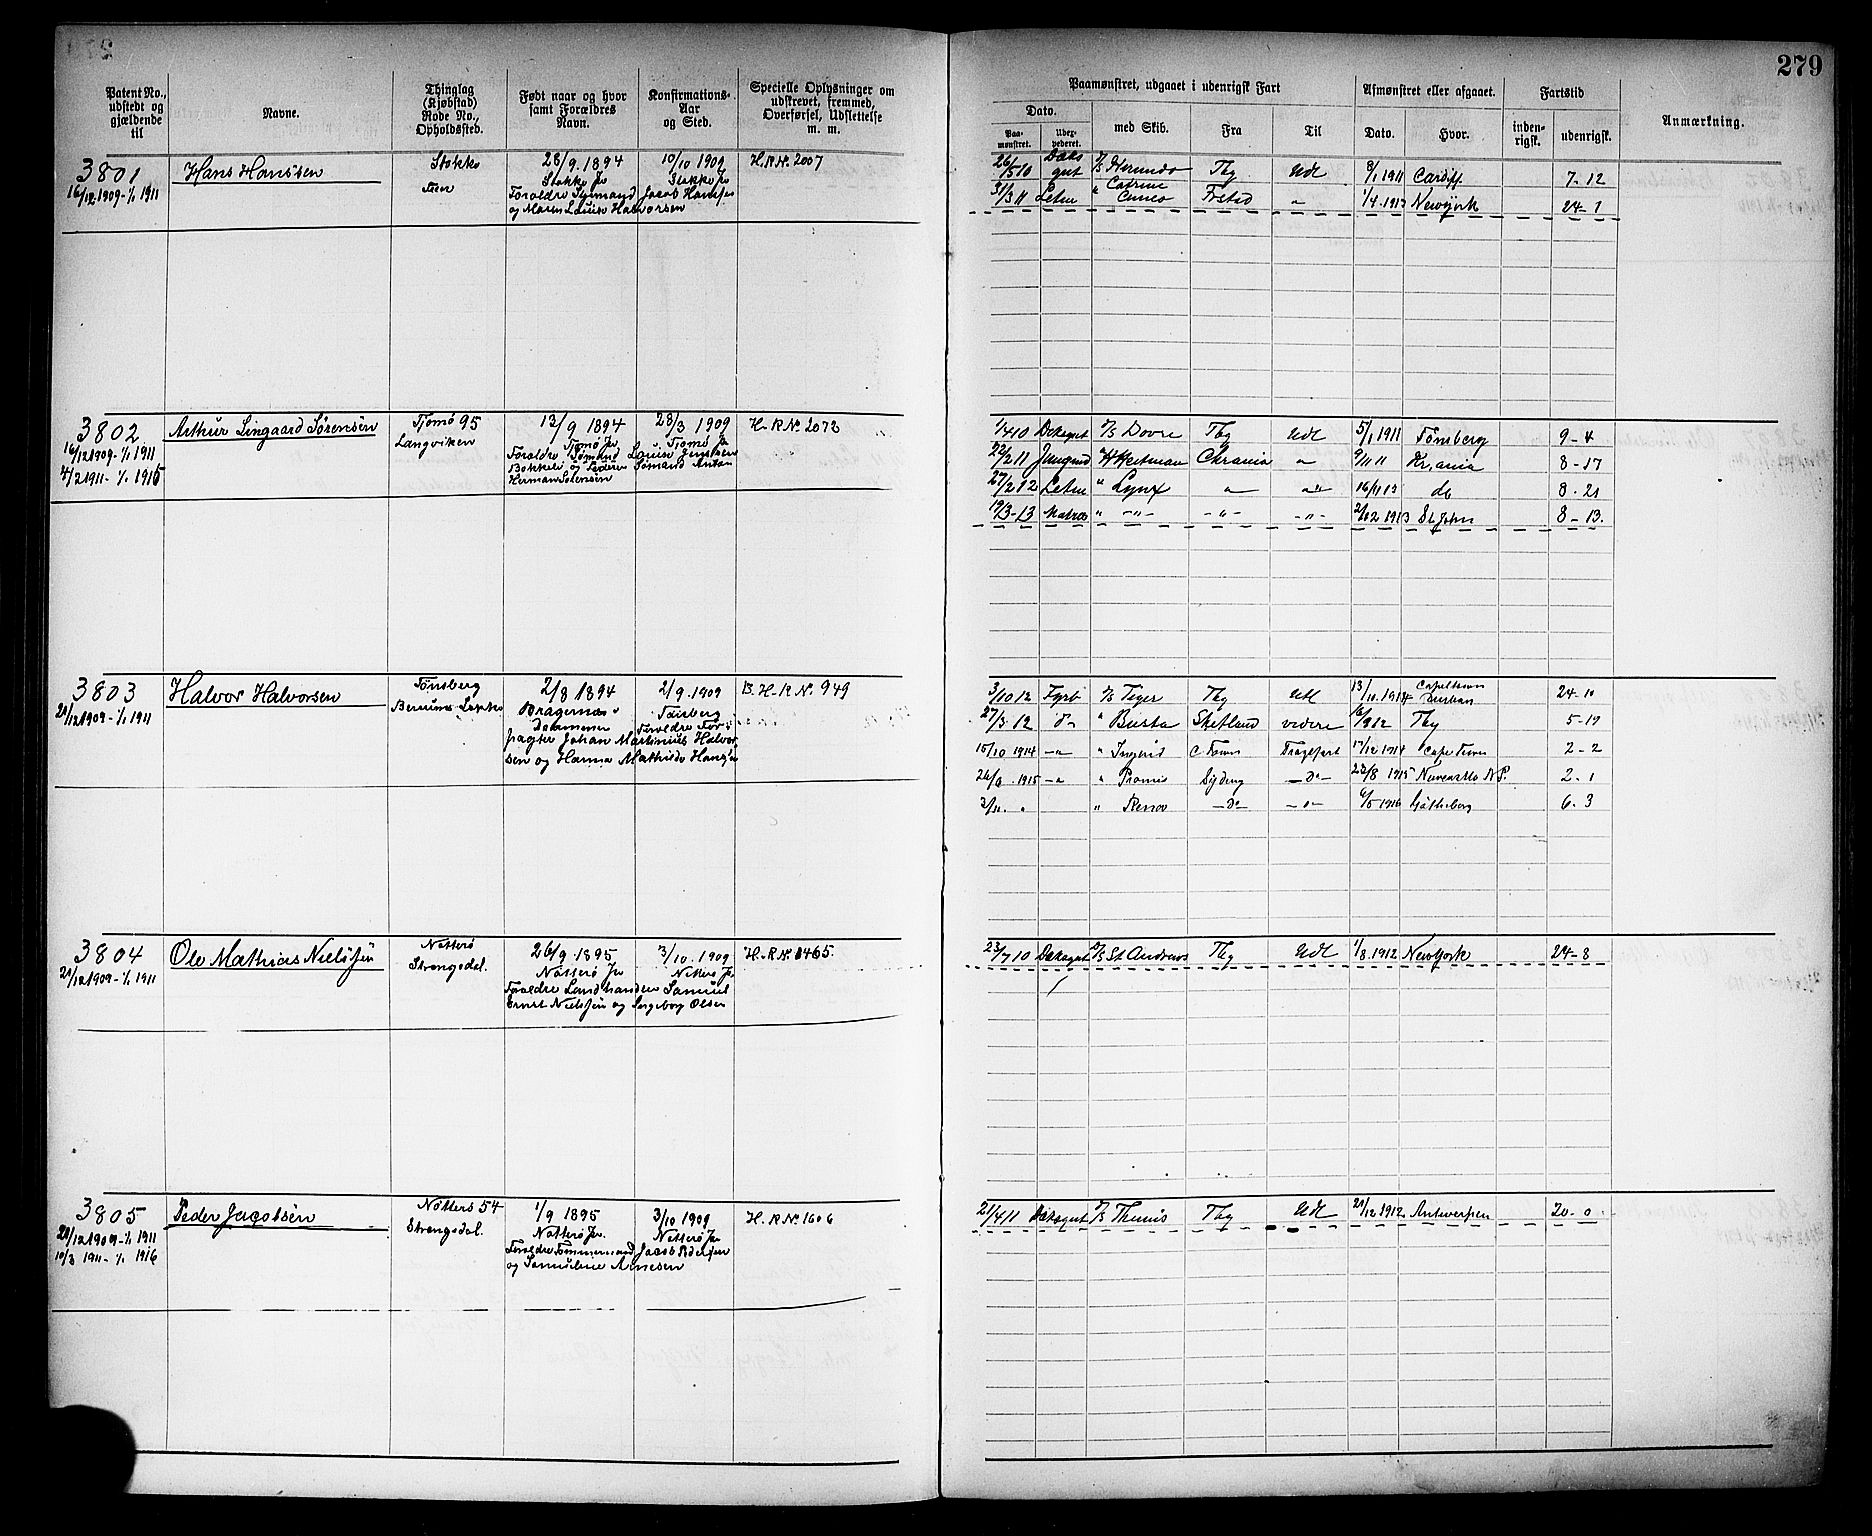 279
Patent No., udstedt og gjældende til
Navne.
Thinglag (Kjøbstad) Rode No., Opholdssted.
Født naar og hvor samt Forældres Navn.
Konfirmations-Aar og Sted.
Specielle Oplysninger om udskrevet, fremmed, Overførsel, Udslettelse m. m.
Paamønstret, udgaaet i udenrigsk Fart
Dato.
Paamønstret.
med Skib.
Fra
Til
Afmønstret eller afgaaet.
Dato.
Hvor.
Fartstid
indenrigsk.
udenrigsk.
Anmærkning.
3801
16/12 1909-1/1 1911
Hans Hansen
Stokke
28/9. 1894
Stokke Pr
10/10 1909
Stokke Pr
og Maren Louise Halvorsen
H.R.N. 2007
26/5 10 Dæksgut Tbg Udl 8/1 1911 Cardiff 7-12
31/3 11 Letm " Catrine Cuneo Frstad " 1/4. 1913 Newyork 24-1
3802
16/12 1909-1/1 1911
4/2 1911- 1/1 1915
Arthur Lingaard Sørensen
Tjømø 95
Langviken
13/9 1894
Tjømø Pr
28/3 1909
Tjømø Pr
Herman Sørensen
H-R N. 2072
1/4 10 Dæksgut Dovre Tbg Udl 5/1 1911 Tönsberg 9-4
22/2 11 Jungmd Chrania " 9/11 11 Kr.ania 8-17
27/2 12 Letm " Lynx " " 16/11 do 8-21
19/3-13 Matros " -"- -"- -"- 2/12 1913 St John 8-13.
3803
21/12 1909-1/1 1911
Halvor Halvorsen
Tönsberg
2/8 1894
Bragernæs
Drammen
2/9. 1909
Tönsberg
pagter Johan Martinius Halvor
sen og Hanna Mathilde
B. H-R N. 949
3/10 12 Fyrb Tiger Tbg Utl 13/11. 1914 Capetown Durban 24-10
27/3. 12 do " Busta Shetland videre 1912 Tbg 5-19
15/10 1914 -"- " Ingerid C Town Tragefart 17/12 1914 Cape Town 2-2
1915 -"- " -do- 23/8 1915 2-1
" -do- -"- 6/5 1916 Götheborg 6-3
3804
21/12 1909-1/1 1911
Ole Mathias Nielsen
Nøtterø
Strengsdal.
26/9 1895
Nøtterø Pr
3/10. 1909
Nøtterø Pr
Samuel
Ernst Nielsen og Ingeborg Olsen
H-R N. 1465.
23/7 10 Dæksgut St Andrews Tbg Udl 1/8. 1912 Newyork 24-8
3805
21/12 1909-1/1 1911
10/3 1911-1/1 1916
Peder Jacobsen
Nøtterø 54
Strengsdal.
1/9 1895
Nøtterø Pr.
3/10 1909
Nøtterø Pr
Forældre Tømmermand Jacob Pedersen
og Samueline Arnesen
H. R N. 1606
21/4 11 Dæksgut Themis Tbg Udl 21/12 1912 Antwerpen 20-0